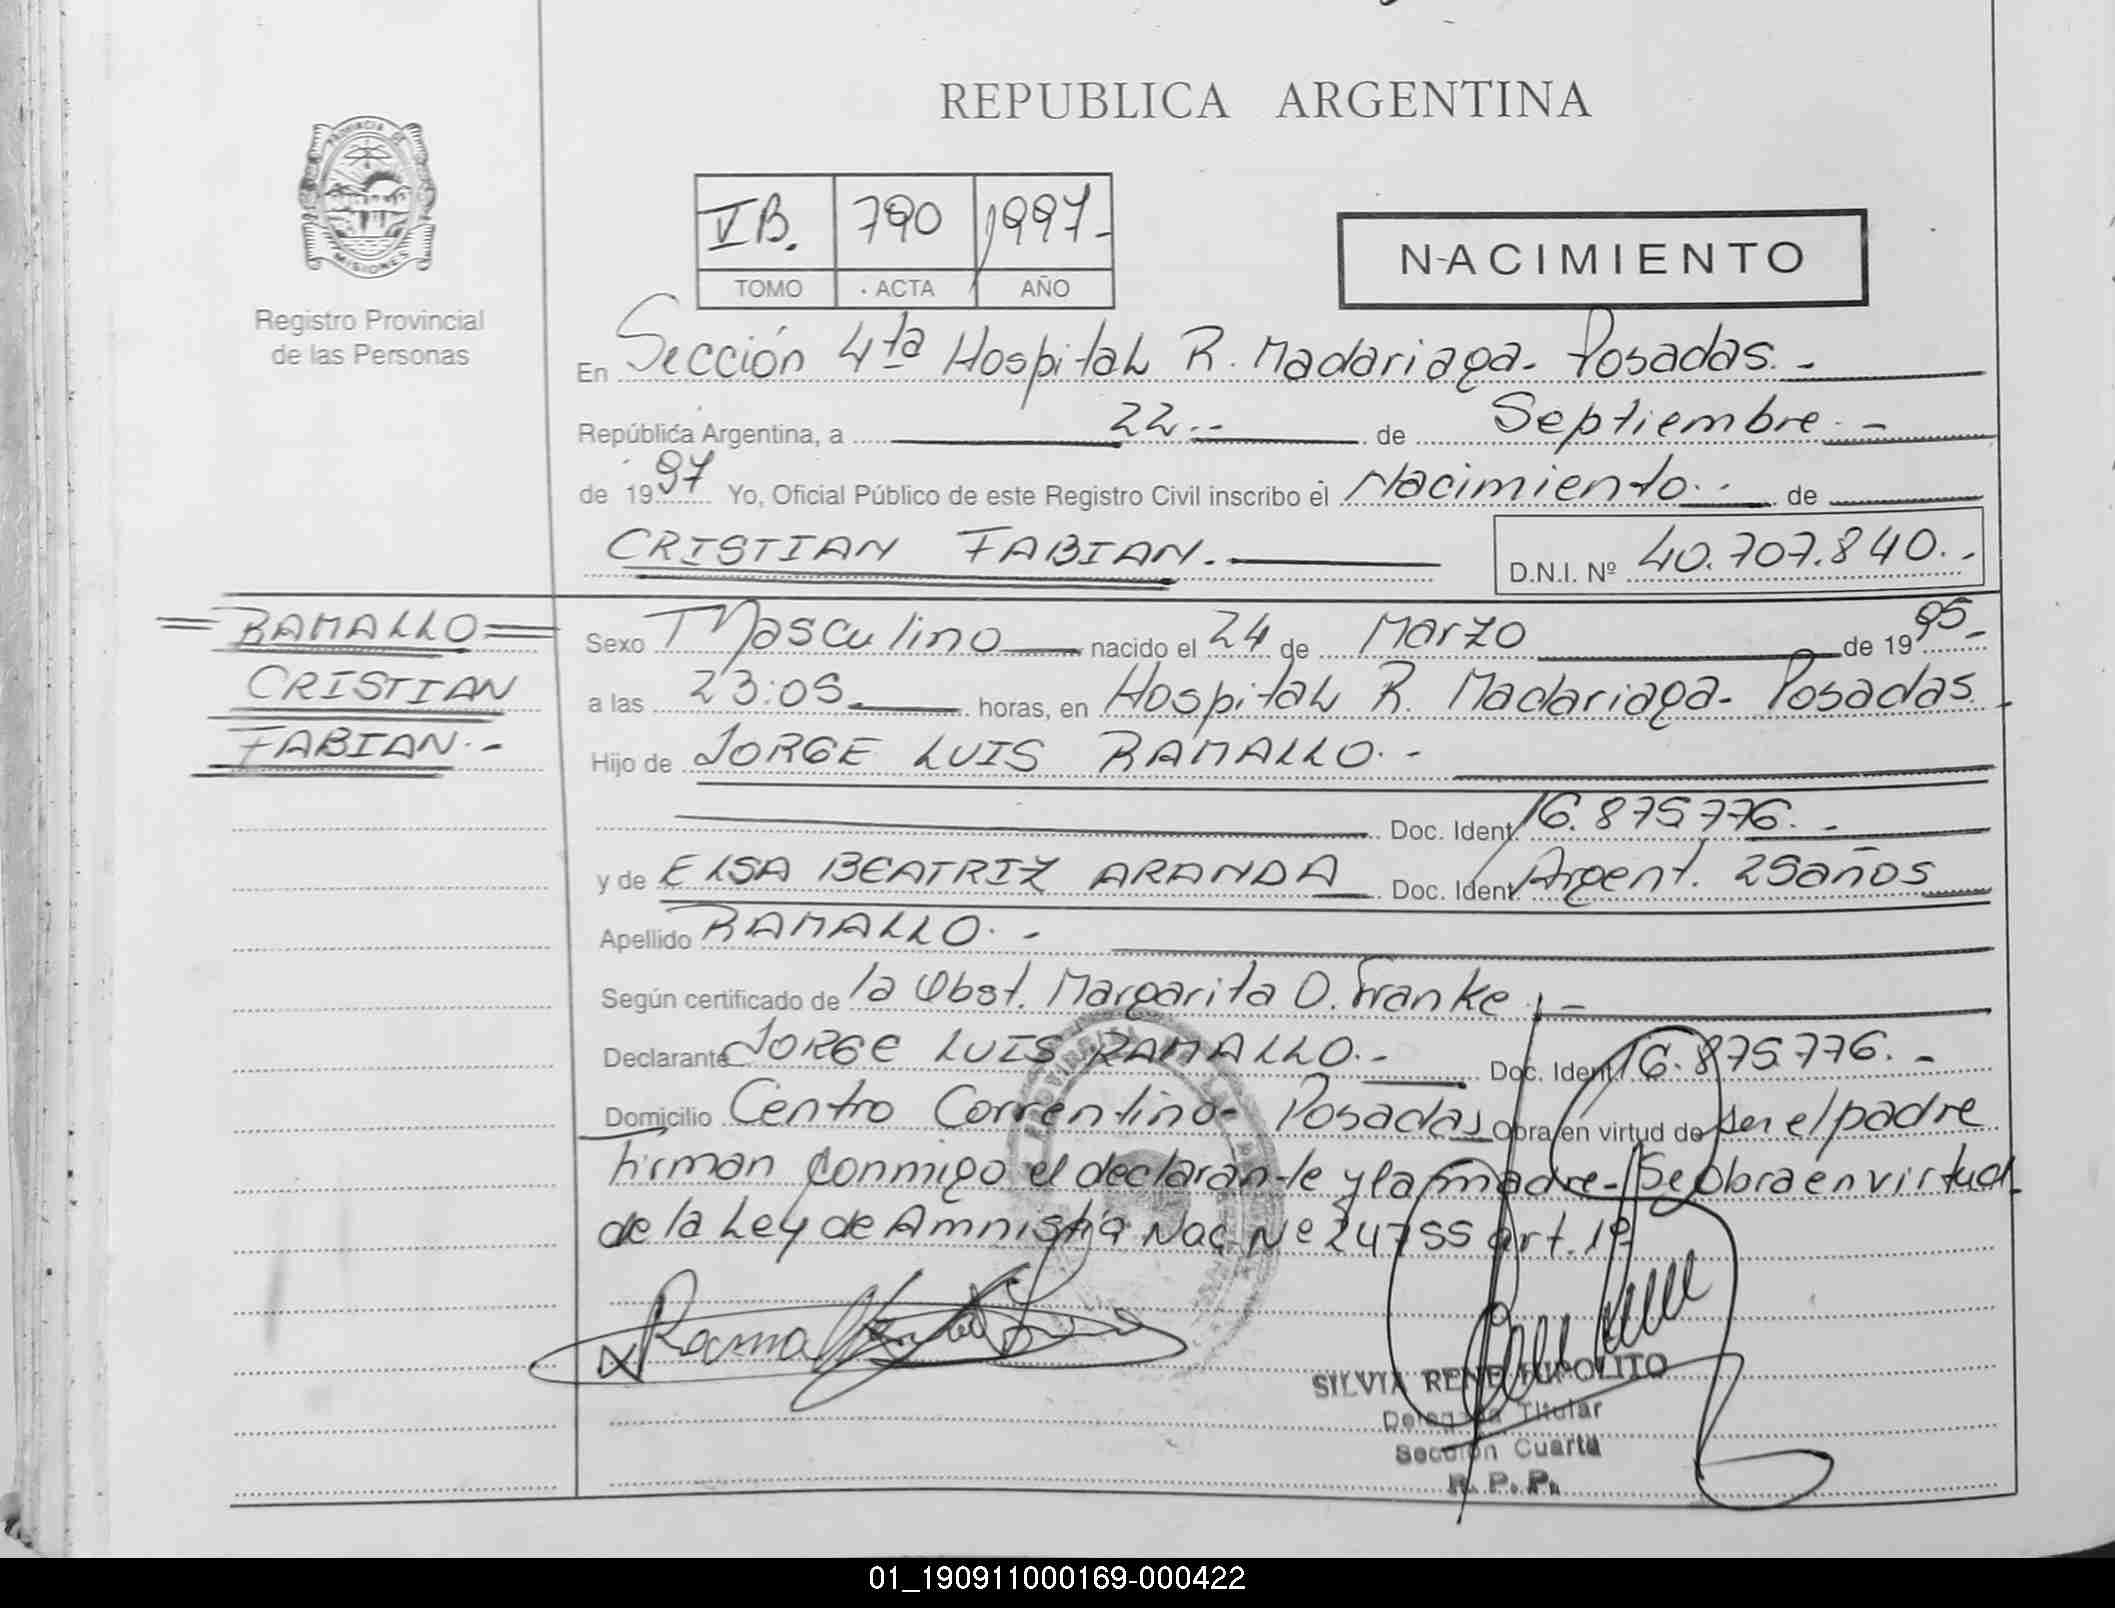 REPUBLICA ARGENTINA
PROVINCIA DE
MISIONES
Registro Provincial
de las Personas
VB. 790 1997-
TOMO ACTA AÑO
NACIMIENTO
En Sección 4ta Hospital R. Madariaga- Posadas.-
República Argentina, a 22.- de Septiembre.-
de 1997 Yo, Oficial Público de este Registro Civil inscribo el Nacimiento.- de
CRISTIAN FABIAN.- D.N.I. Nº 40.707.840.-
=RAMALLO=
CRISTIAN
FABIAN.-
Sexo Masculino nacido el 24 de Marzo de 1995.-
a las 23:05 horas, en Hospital R. Madariaga- Posadas.-
Hijo de JORGE LUIS RAMALLO.-
Doc. Ident. 16.875776.-
y de ELSA BEATRIZ ARANDA Doc. Ident. Argent. 25años
Apellido RAMALLO.-
Según certificado de la Obst. Margarita O. Franke.-
Declarante JORGE LUIS RAMALLO.- Doc. Ident. 16.875776.-
Domicilio Centro Correntino- Posadas Obra en virtud de ser el padre
firman conmigo el declarante y la madre- Se obra en virtud
de la Ley de Amnistía Nac. Nº 24755 art. 1º
Ramallo
SILVIA RENE HIPOLITO
Delegada Titular
Sección Cuarta
R. P. P.
01_190911000169-000422